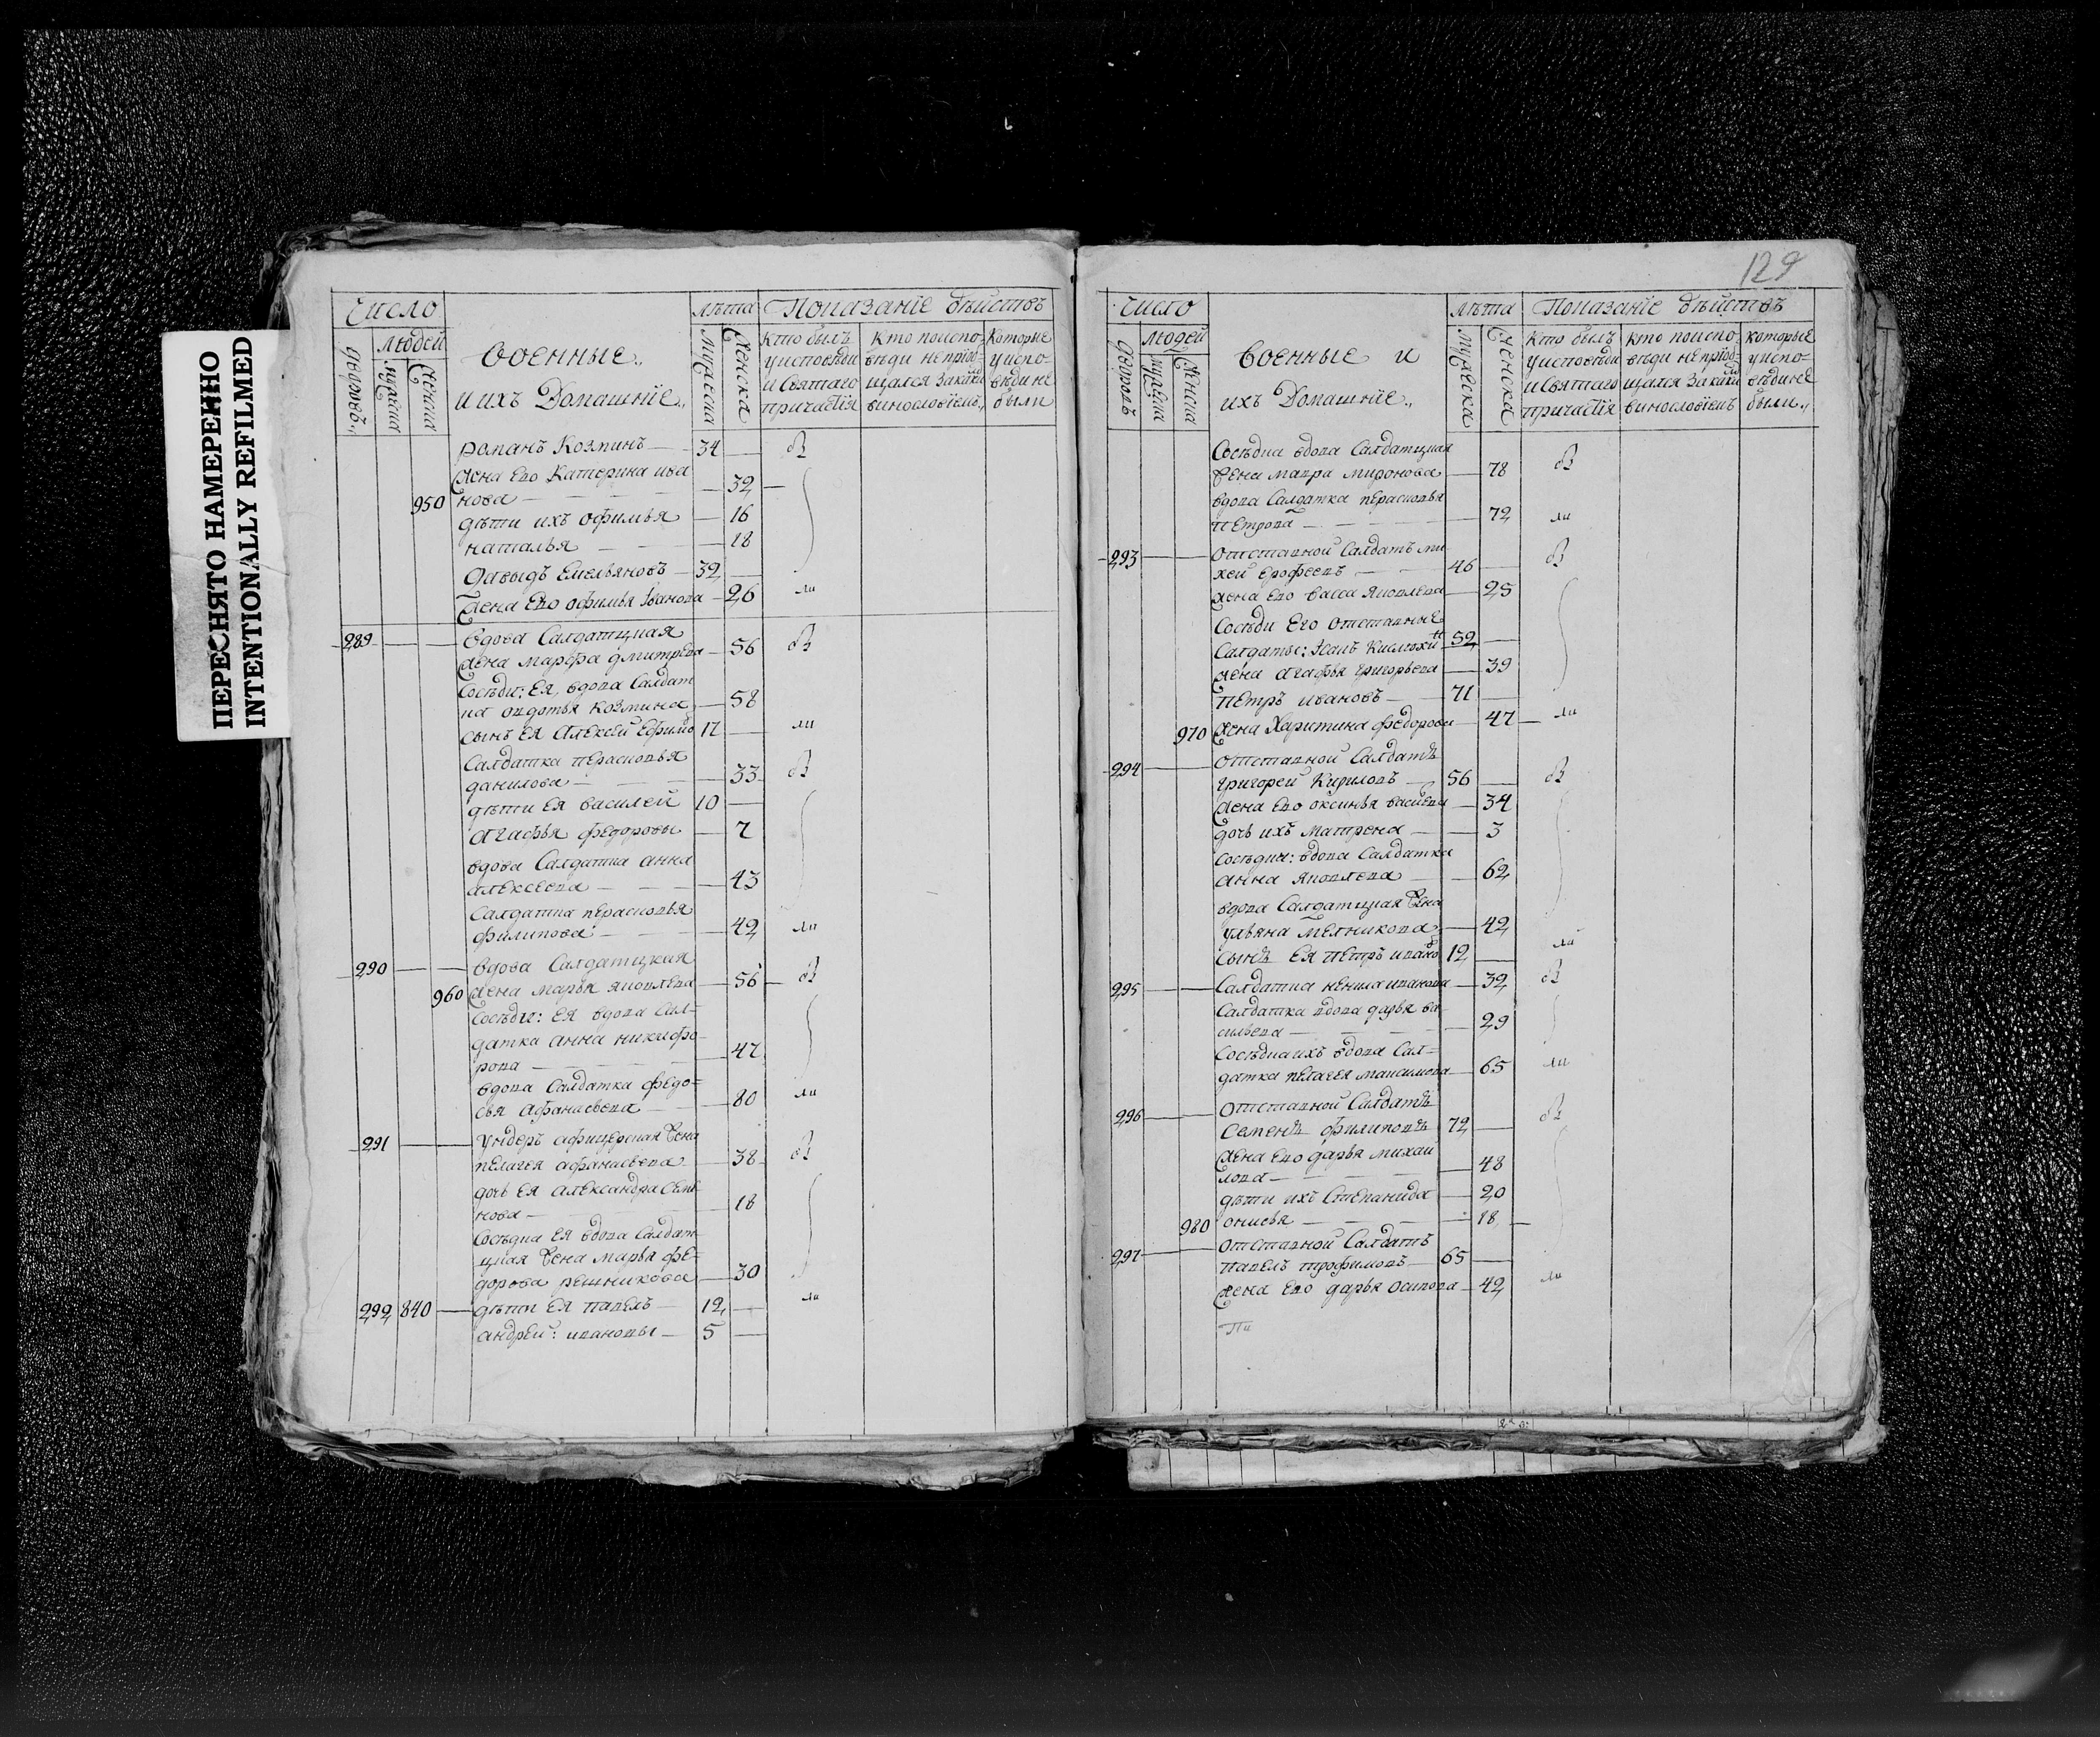 ПЕРЕСНЯТО НАМЕРЕННО
INTENTIONALLY REFILMED
Число
людей
дворовъ
мужеска
женска
военные
и ихъ домашнїе
лѣта
мужеска
женска
Показанїе дѣйствъ
кто былъ у исповѣди и святаго причастїя
кто по исповѣди не прїобщался за каким винословїемъ
которые у исповѣди не были
романъ Козминъ — 34
жена ево Катерина ива
950 нова — 32
дѣти ихъ офимья — 16
наталья — 18
давыдъ Емельяновъ — 32
жена ево офимья Іванова — 26
289 вдова Салдатцкая
жена марфа дмитрева — 56
Сосѣди: Ея, вдова Салдат
ка авдотья козмина — 58
сынъ ея Алексей Ефимо 17
Салдатка перасковья
данилова — 33
дѣти ея василей 10
агафья федоровы — 7
вдова Салдатка анна
алексеева — 43
Салдатка перасковья
филипова — 42
290 вдова Салдатцкая
960 жена марья яковлева — 56
Сосѣди: ея вдова Сал-
датка анна никифо-
рова — 47
вдова Салдатка федо=
сья афанасьева — 80
291 ундеръ афицерская жена
пелагея афанасьева — 38
дочь ея александра семе
нова — 18
Сосѣдка ея вдова Салдат
цкая жена марья фе-
дорова решникова — 30
292 840 дѣти ея павелъ — 12
андрей: ивановы — 5
129
Число
людей
дворовъ
мужеска
женска
военные и
ихъ домашнїе
лѣта
мужеска
женска
Показанїе дѣйствъ
кто былъ у исповѣди и святаго причастїя
кто по исповѣди не прїобщался за каким винословїемъ
которые у исповѣди не были
Сосѣдка вдова Салдатцкая
жена мавра миронова — 78
вдова Салдатка перасковья
петрова — 72
293 отставной Салдатъ ми
хей ерофеевъ — 46
жена ево васса яковлева — 25
Сосѣди Его отставные
Салдаты: Іванъ Кислюхин 52
жена агафья григорьева — 39
петръ ивановъ — 71
970 жена Харитина федорова — 47
294 отставной Салдатъ
григорей Кириловъ — 56
жена ево оксинья васильева — 34
дочь ихъ матрена — 3
сосѣдки: вдова Салдатка
анна яковлева — 62
вдова Салдатцкая жена
ульяна мелникова — 42
сынъ ея петръ ивано 12
295 Салдатка ненила иванова — 32
Салдатка вдова дарья ва
сильева — 29
Сосѣдка ихъ вдова Сал=
датка пелагея максимова — 65
296 отставной Салдатъ
Семенъ филиповъ 72
жена ево дарья михаи
лова — 48
дѣти ихъ Степанида — 20
980 онисья — 18
297 отставной Салдатъ
павелъ трофимовъ — 65
жена ево дарья осипова — 42